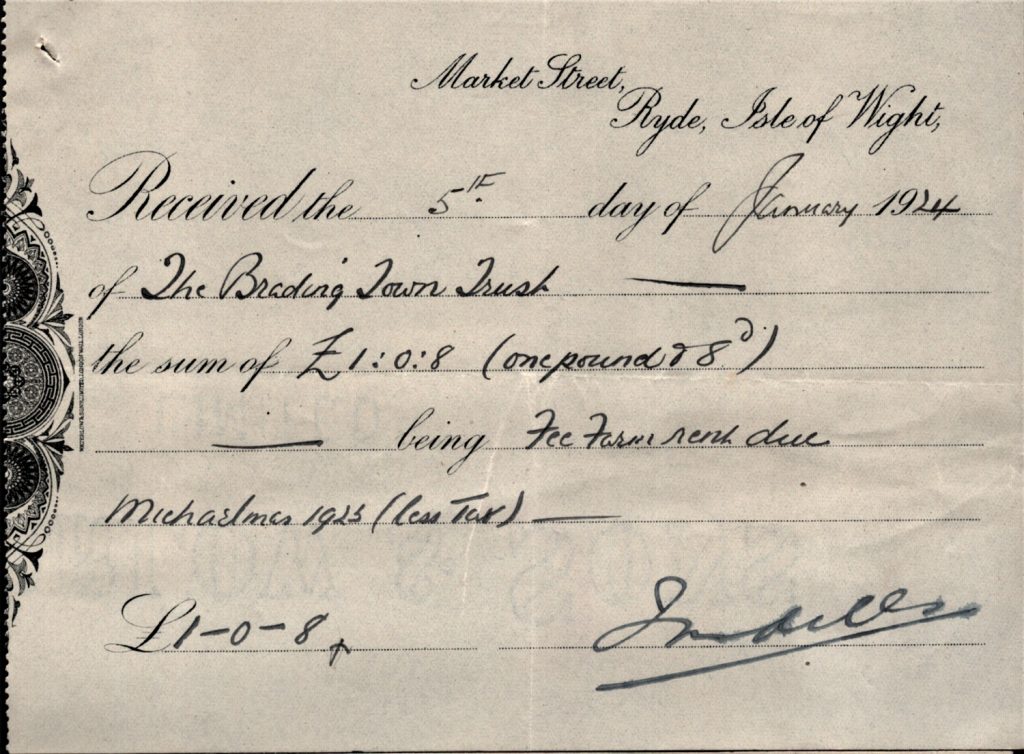 Market Street,
Ryde, Isle of Wight,
Received the 5th day of January 1924
of The Brading Town Trust
the sum of £1:0:8 (one pound & 8d)
being Fee Farm rent due
Michaelmas 1923 (less Tax)
£1-0-8